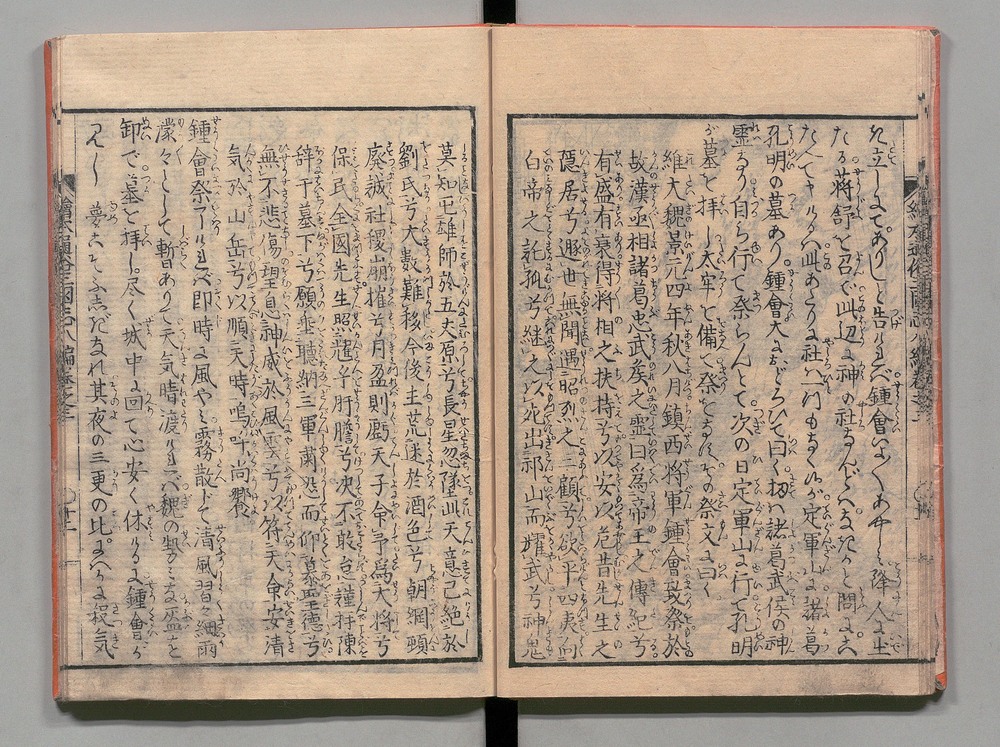 た立しまであり しと告ければ鍾會いよ〳〵あやしみ降人に出
たる蔣舒を召て此辺に神の社なんどはなきかと問に
たへて けるは此あたりに社は一つもなく候が定軍山に諸葛
孔明の墓あり鍾會大におどろひて曰く扨は諸葛武侯の神
霊なり自ら行て祭らんとて次の日定軍山に行て孔明
が墓を拝し太牢を備て祭をなすその祭文に曰く
維大魏景元四年秋八月鎮西將軍鍾會致祭於
故漢丞相諸葛忠武矦之靈曰爲帝王之傳記兮
有盛有衰得將相之扶持兮以安以危昔先生之
隱居兮遯世無聞遇昭烈之三顧兮欲平四夷向
白帝之託孤兮継之以死出祁山而耀武兮神鬼
莫知屯雄師於五丈原兮長星忽墜此天意已絶於
劉氏兮大數難移今後主荒迷於酒色兮朝綱頓
廢誠社稷崩摧兮月盈則虧天子命予爲大將兮
保民全國先生照鑒平肝膽兮決不敢怠謹拜陳
辞于墓下兮願垂聽納三軍肅恐而仰墓聖德兮
無不悲傷望息神威於風雲兮以符天命安清
気於山岳兮以順天時嗚呼尚饗
鍾會祭 ければ即時に風やみ霧散して清風習々細雨
濛々として暫ありて天気晴渡ければ魏の勢 と
卸て墓を拝し尽く城中に回て心安く休けるに鍾會が
夢 ふしぎなれ其夜の三更の比 殺気
繪本通俗三國志八編巻之三
十一